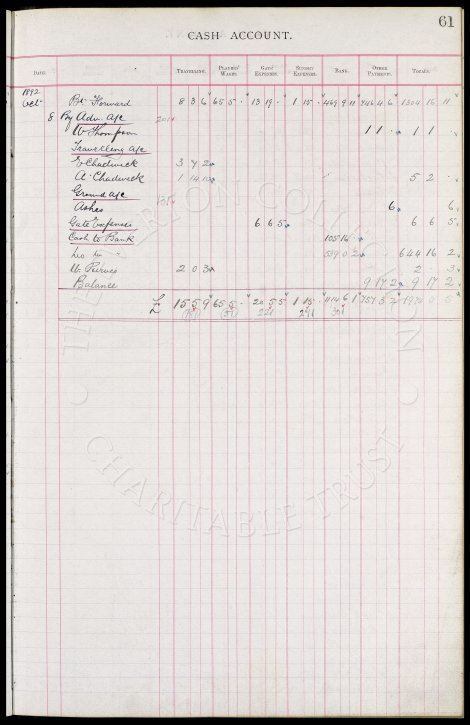 61
CASH ACCOUNT.
DATE. TRAVELLING. PLAYERS' WAGES. GATE EXPENSES. SUNDRY EXPENSES. BANK. OTHER PAYMENTS. TOTALS.
1892
Oct Bt. Forward 8 3 6 65 5 - 13 19 - 1 15 - 469 9 11 746 4 6 1304 16 11
8 By Adv. a/c
W Thompson 1 1 - 1 1 -
Travelling a/c
E Chadwick 3 7 2
A. Chadwick 1 14 10 5 2 -
Ground a/c
Ashes 6 6
Gate Expenses 6 6 5 6 6 5
Cash to Bank 105 16 -
Do 539 0 2 644 16 2
W. Reeves 2 0 3 2 - 3
Balance 9 17 2 9 17 2
£ 15 5 9 65 5 - 20 5 5 1 15 - 6 1 757 3 2
221 241 301
THE EVERTON COLLECTION
CHARITABLE TRUST